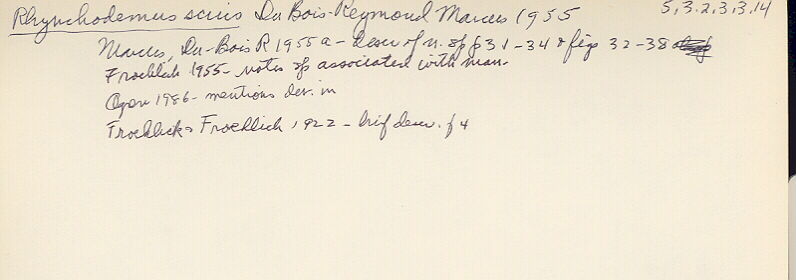 Rhynchodemus scius Du Bois-Reymond Marcus 1955 5,3.2,3,3.14
Marcus, Du-Bois R 1955a - descr of n. sp p 31-34 & figs 32-38
Froehlich 1955 - notes sp associated with man.
Ogren 1986 - mentions der. in
Froehlich & Froehlich 1972 - brief descr. p 4